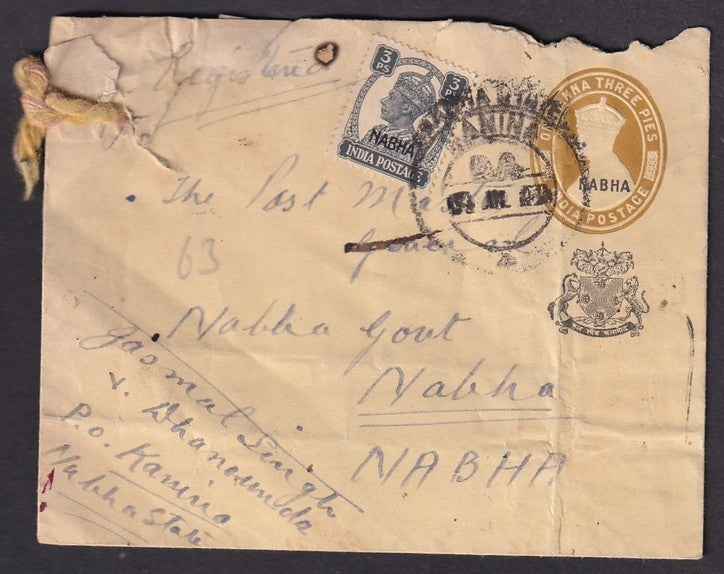 Registered
3 PS 3 PS
NABHA
INDIA POSTAGE
KANINA
ONE ANNA THREE PIES
NABHA
INDIA POSTAGE
The Post Master
General
63
Nabha Govt
Nabha
NABHA
Jasmal Singh
v. Dhanaunda
P.O. Kanina
Nabha State